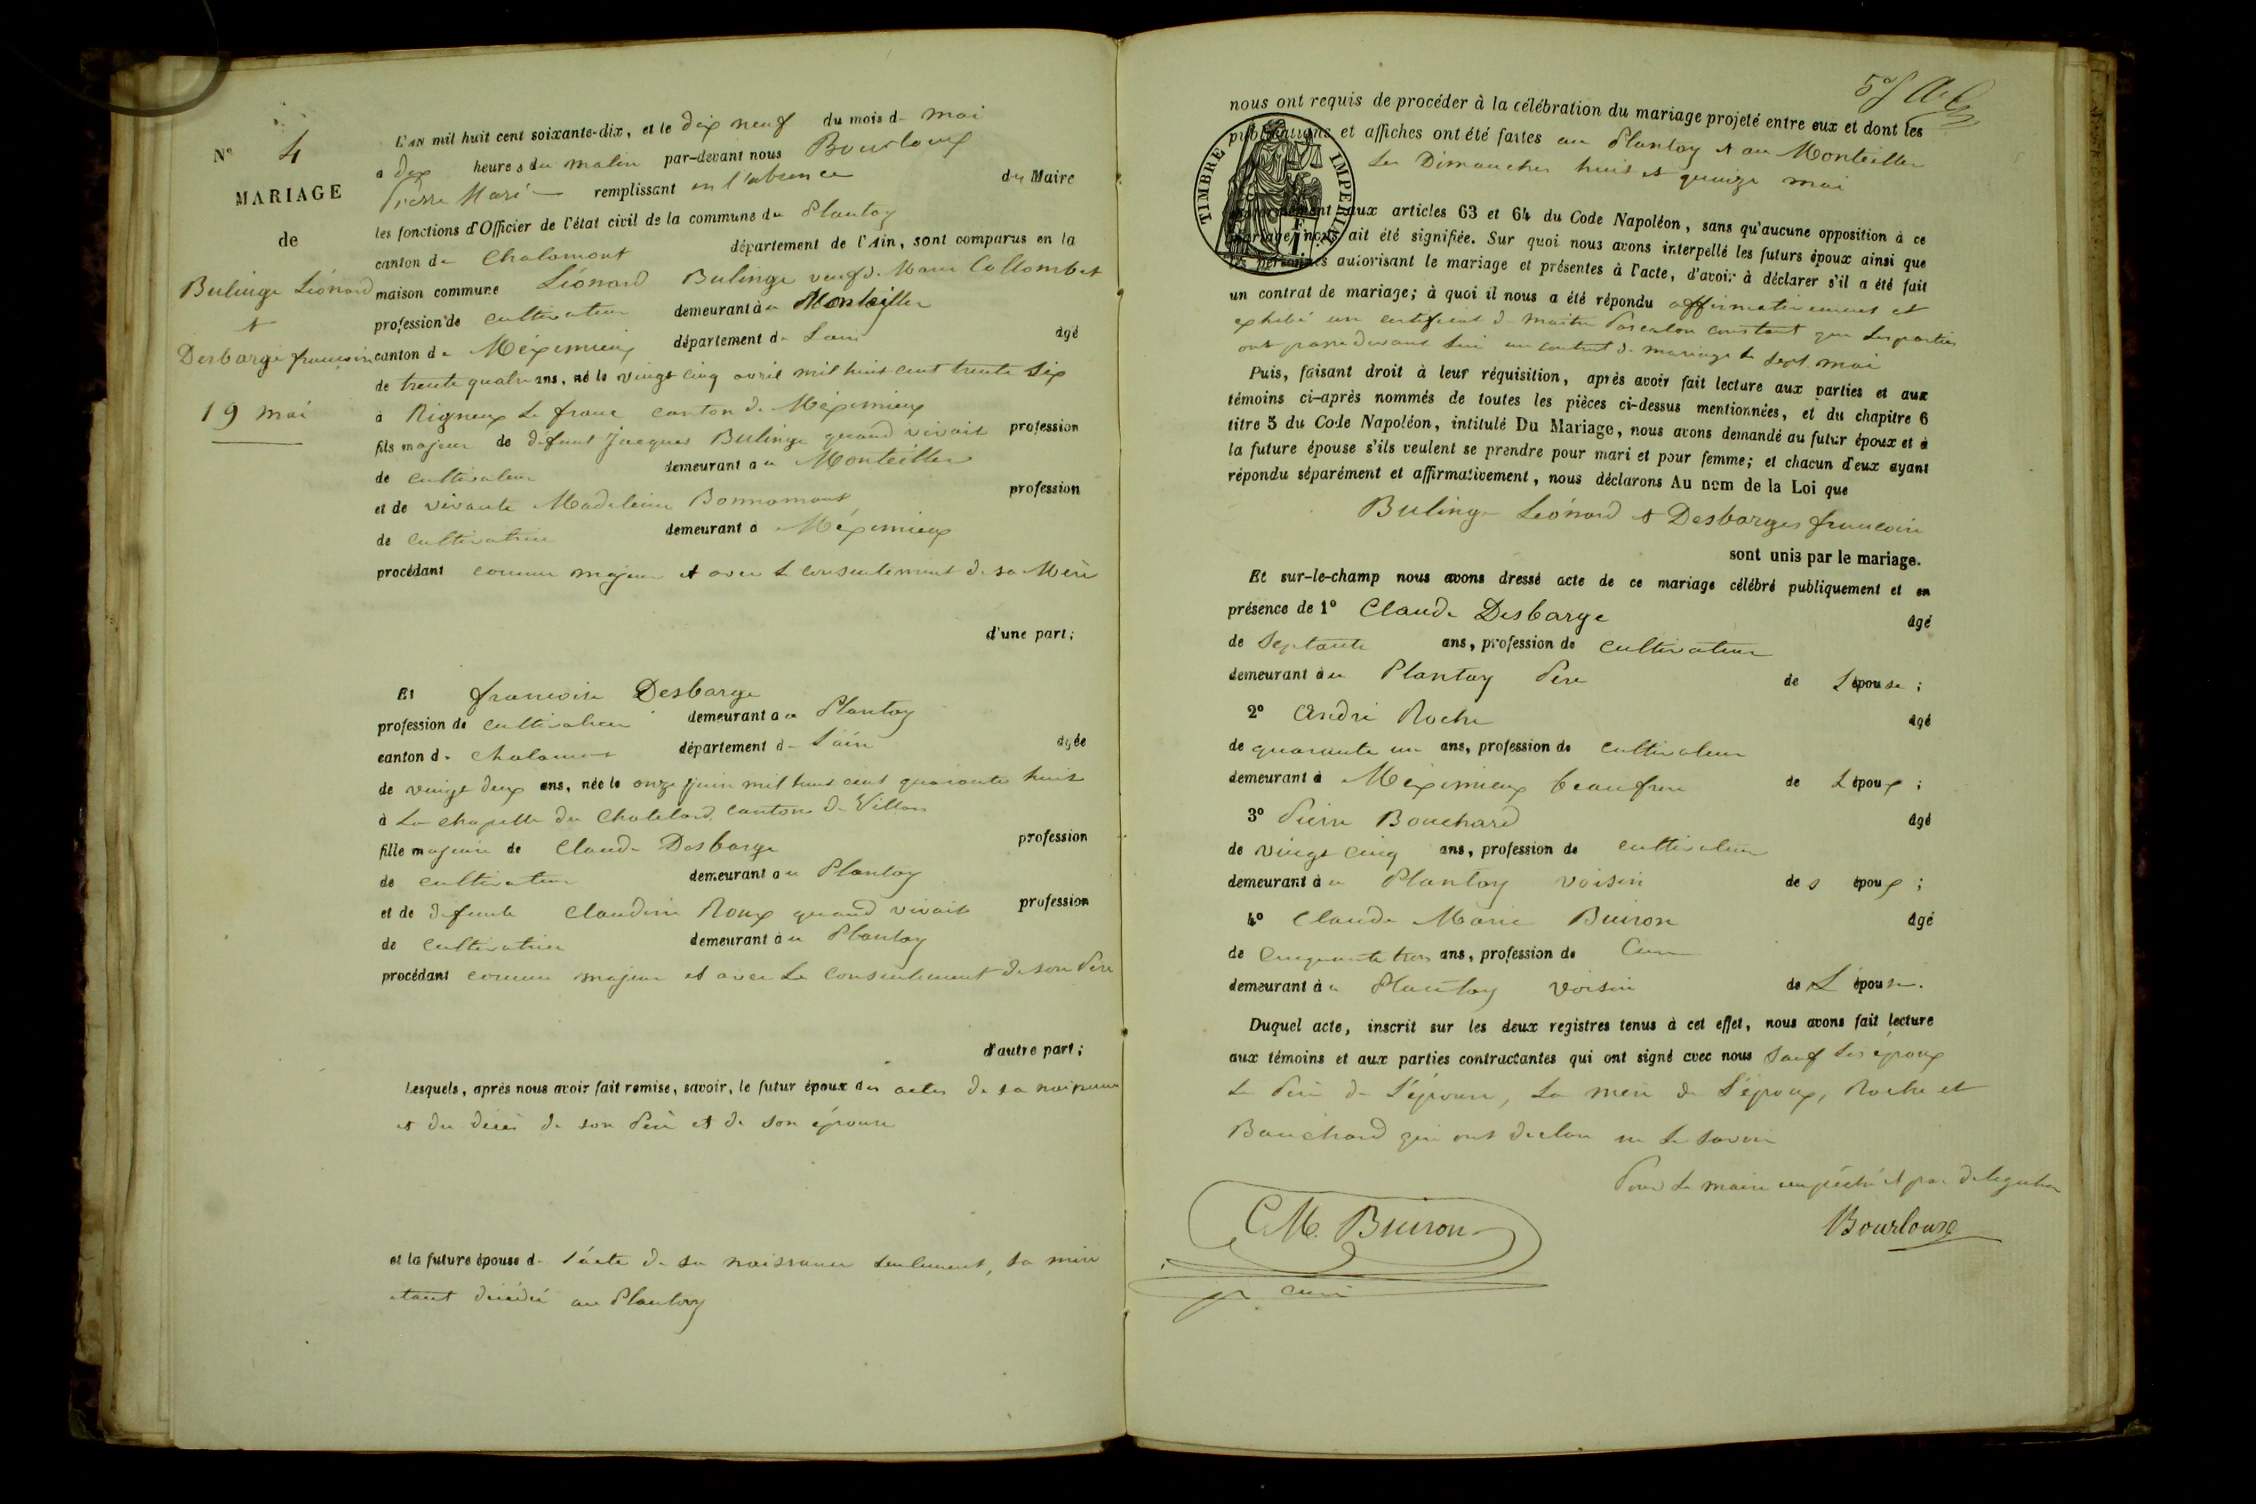 N° 4
MARIAGE
de
Bulinge Léonard
et
Desbarge francoise
19 mai
L'AN mil huit cent soixante-dix, et le dix neuf du mois d- mai
a dix heures du matin par-devant nous Bourloux
Pierre Marie remplissant en l'absence du Maire
les fonctions d'Officier de l'état civil de la commune du Plantay
canton de Chalamont département de l'Ain, sont comparus en la
maison commune Léonard Bulinge veuf de Marie Collombet
profession de cultivateur demeurant à u Montellier
canton de Méximieux département de Lain agé
de trente quatre ans, né le vingt cinq avril mil huit cent trente six
à Rigneux le franc canton de Méximieux
fils majeur de défunt Jacques Bulinge quand vivait profession
de cultivateur demeurant a u Monteiller
et de vivante Madeleine Bonnamour profession
de cultivatrice demeurant a Méximieux
procédant comme majeur et avec le consentement de sa Mère
d'une part;
Et francoise Desbarge
profession de cultivatrice demeurant a u Plantay
canton de chalamont département de L'ain agée
de vingt deux ans, née le onze juin mil huit cent quarante huit
à La chapelle du Chatelard, canton de Villars
fille majeure de Claude Desbarge profession
de cultivateur demeurant au Plantay
et de défunte Claudine Roux quand vivait profession
de cultivatrice demeurant à u Plantay
procédant comme majeur et avec le consentement de son Père
d'autre part;
Lesquels, après nous avoir fait remise, savoir, le futur époux des actes de sa naissance
et du décès de son Père et de son épouse
et la future épouse de l'acte de sa naissance seulement, sa mère
étant décédée au Plantay
57
nous ont requis de procéder à la célébration du mariage projeté entre eux et dont les
publications et affiches ont été faites au Plantay et au Monteiller
les Dimanches huit et quinze mai
TIMBRE IMPERIAL
conformément aux articles 63 et 64 du Code Napoléon, sans qu'aucune opposition à ce
mariage nous ait été signifiée. Sur quoi nous avons interpellé les futurs époux ainsi que
les personnes autorisant le mariage et présentes à l'acte, d'avoir à déclarer s'il a été fait
un contrat de mariage; à quoi il nous a été répondu affirmativement et
exhibé un certificat de maître constant que les parties
ont passé devant lui un contrat de mariage le sept mai
Puis, faisant droit à leur réquisition, après avoir fait lecture aux parties et aux
témoins ci-après nommés de toutes les pièces ci-dessus mentionnées, et du chapitre 6
titre 5 du Code Napoléon, intitulé Du Mariage, nous avons demandé au futur époux et à
la future épouse s'ils veulent se prendre pour mari et pour femme; et chacun d'eux ayant
répondu séparément et affirmativement, nous déclarons Au nom de la Loi que
Bulinge Léonard et Desbarges francoise
sont unis par le mariage.
Et sur-le-champ nous avons dressé acte de ce mariage célébré publiquement et en
présence de 1° Claude Desbarge agé
de Septante ans, profession de cultivateur
demeurant à u Plantay Père de L'épouse;
2° André Roche agé
de quarante un ans, profession de cultivateur
demeurant à Méximieux beaufrere de L'époux;
3° Pierre Bouchard agé
de vingt cinq ans, profession de cultivateur
demeurant à u Plantay voisin des époux;
4° Claude Marie Buiron agé
de Cinquante trois ans, profession de Curé
demeurant à u Plantay voisin de L'épouse.
Duquel acte, inscrit sur les deux registres tenus à cet effet, nous avons fait lecture
aux témoins et aux parties contractantes qui ont signé avec nous sauf les époux
Le Père de L'épouse, La mère de L'époux, Roche et
Bouchard qui ont déclaré ne le savoir
Pour le maire empêché et par délégation
C. M. Buiron
curé
Bourloux